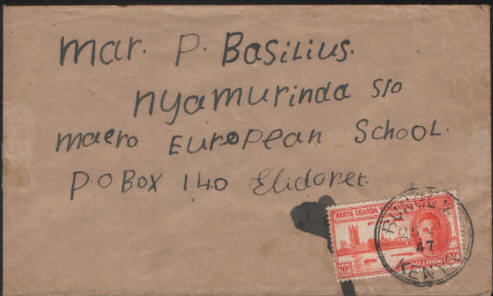 mar. P. Basilius.
nyamurinda s/o
maero European School.
P.O Box 140 Elidoret
KENYA UGANDA
20
47
KENYA